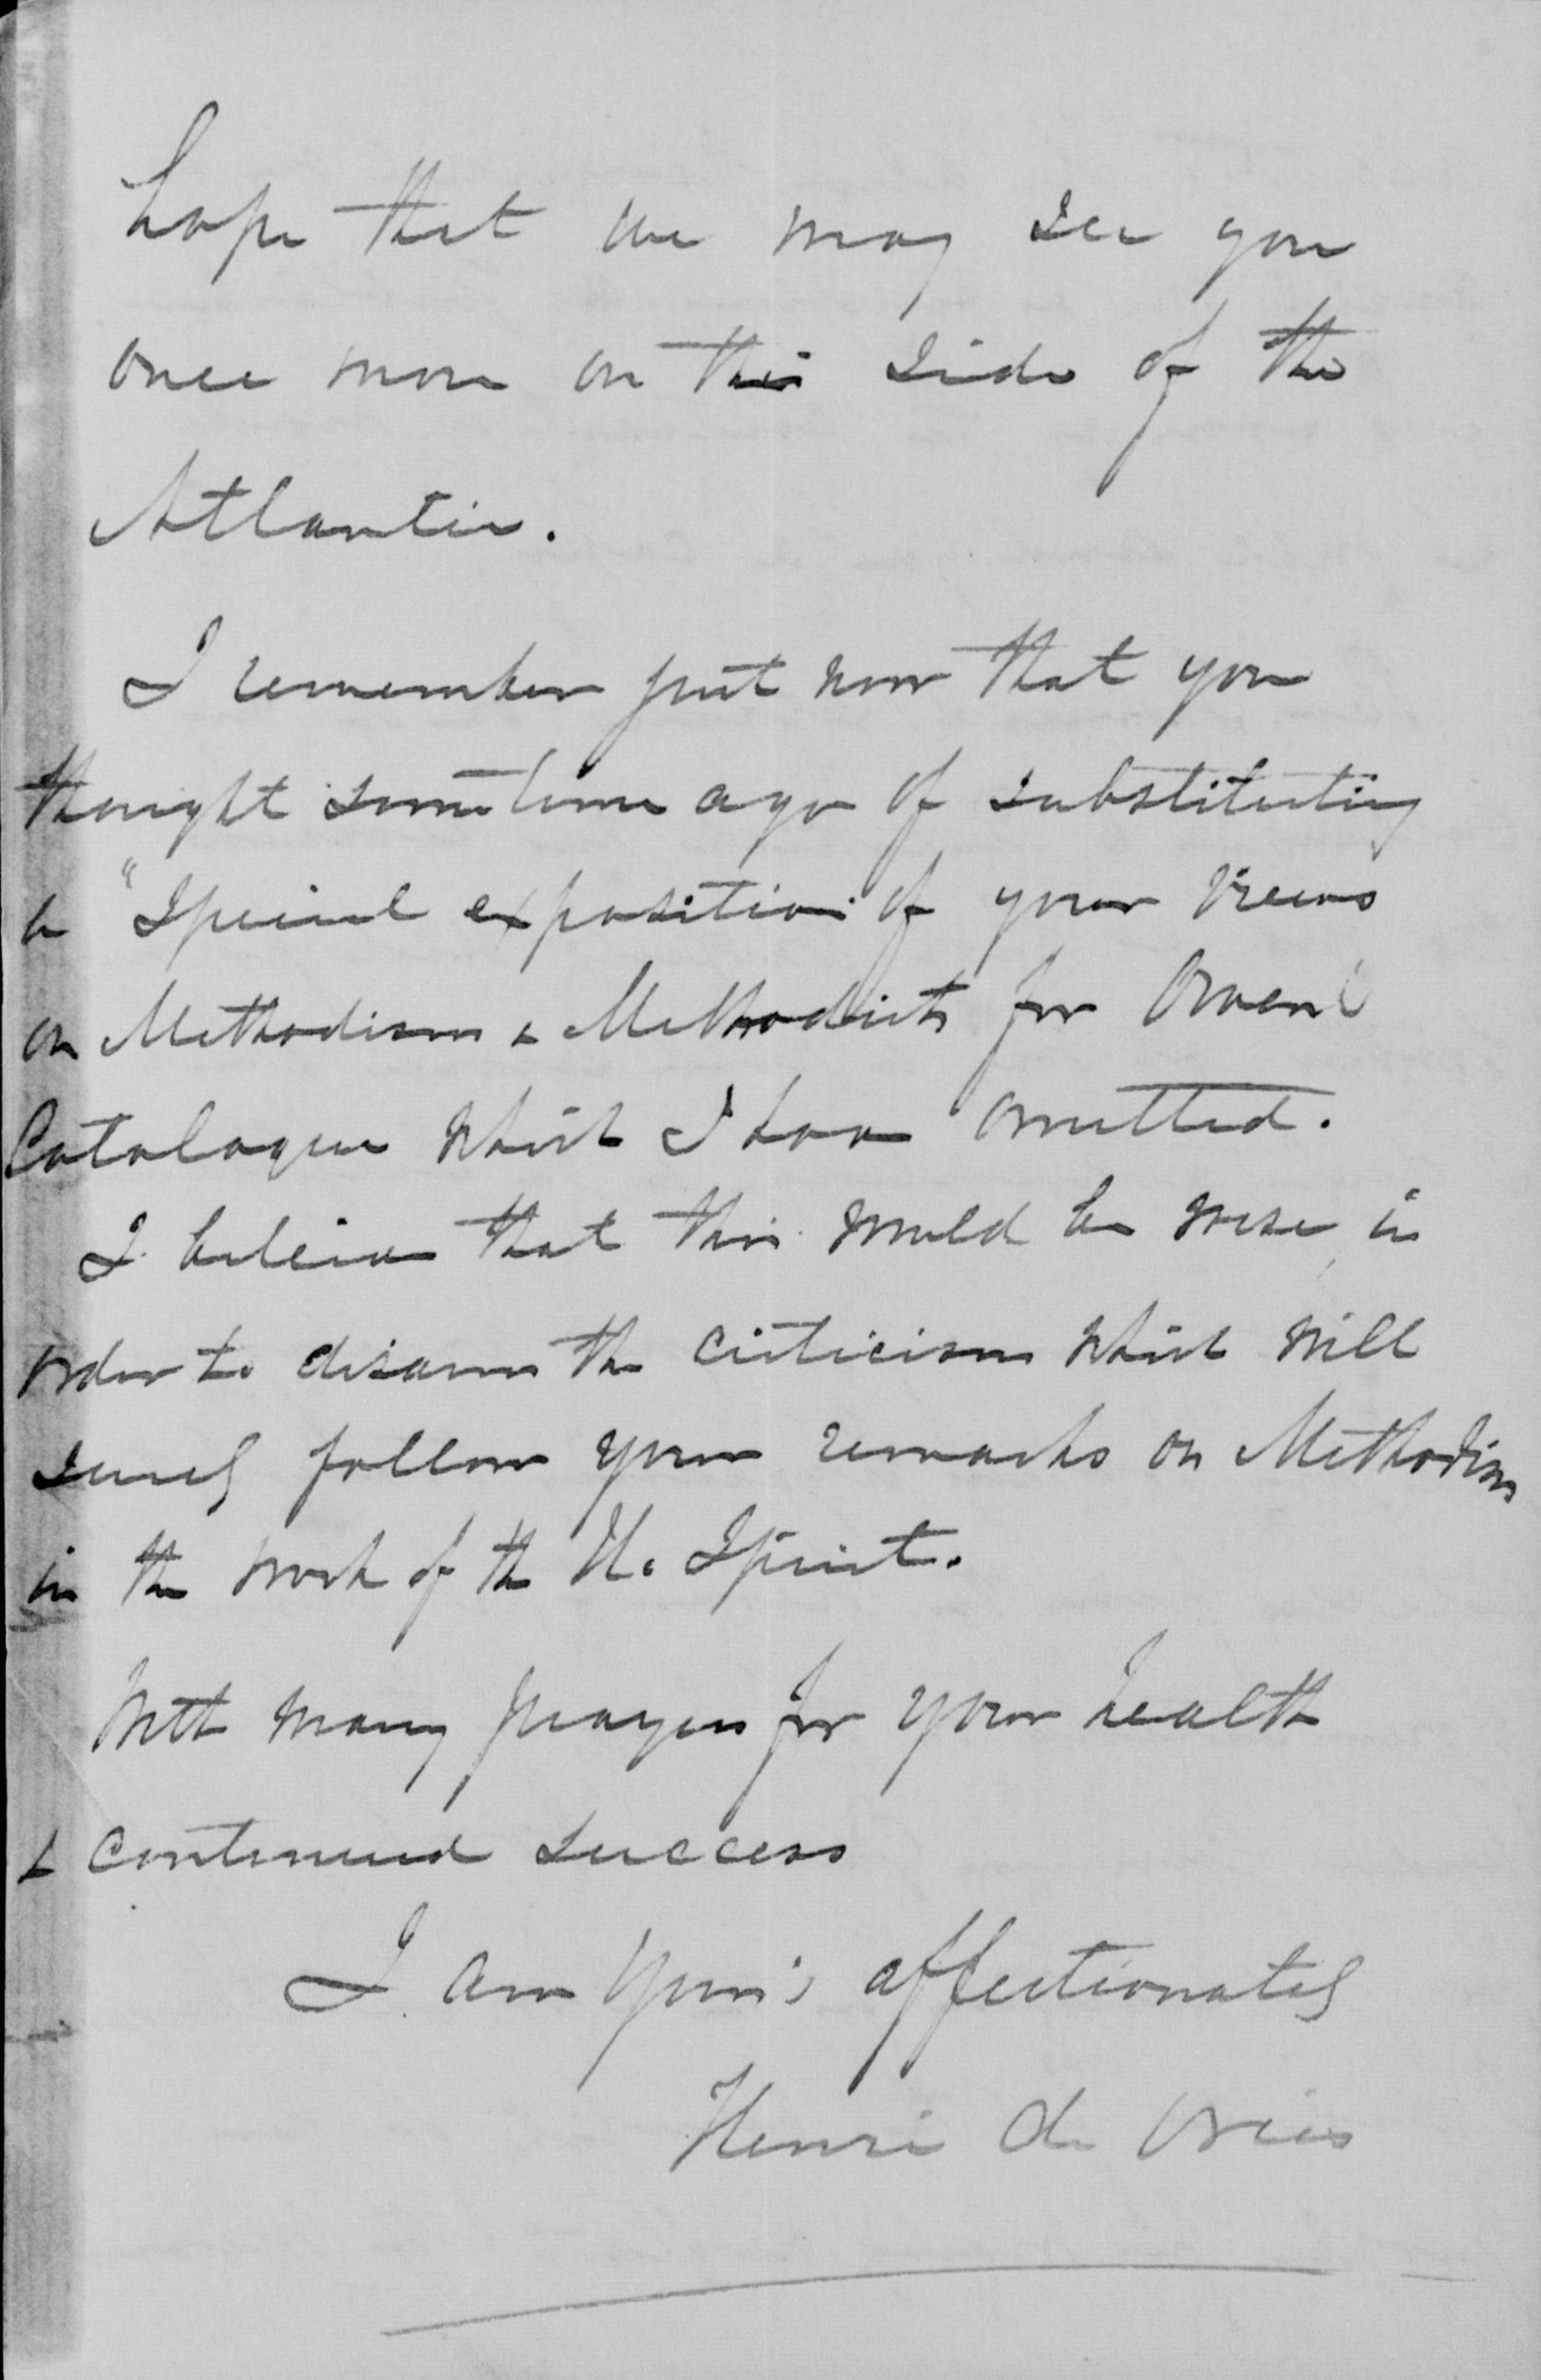 hope that we may see you
once more on this side of the
Atlantic.
I remember just now that you
thought sometime ago of substituting
a "Special exposition of your views
on Methodism & Methodists for Owen's
Catalogue which I have omitted.
I believe that this would be wise in
order to disarm the criticism which will
surely follow your remarks on Methodism
in the work of the H. Spirit.
With many prayers for your health
& continued success
I am Your's affectionately
Henri de Vries